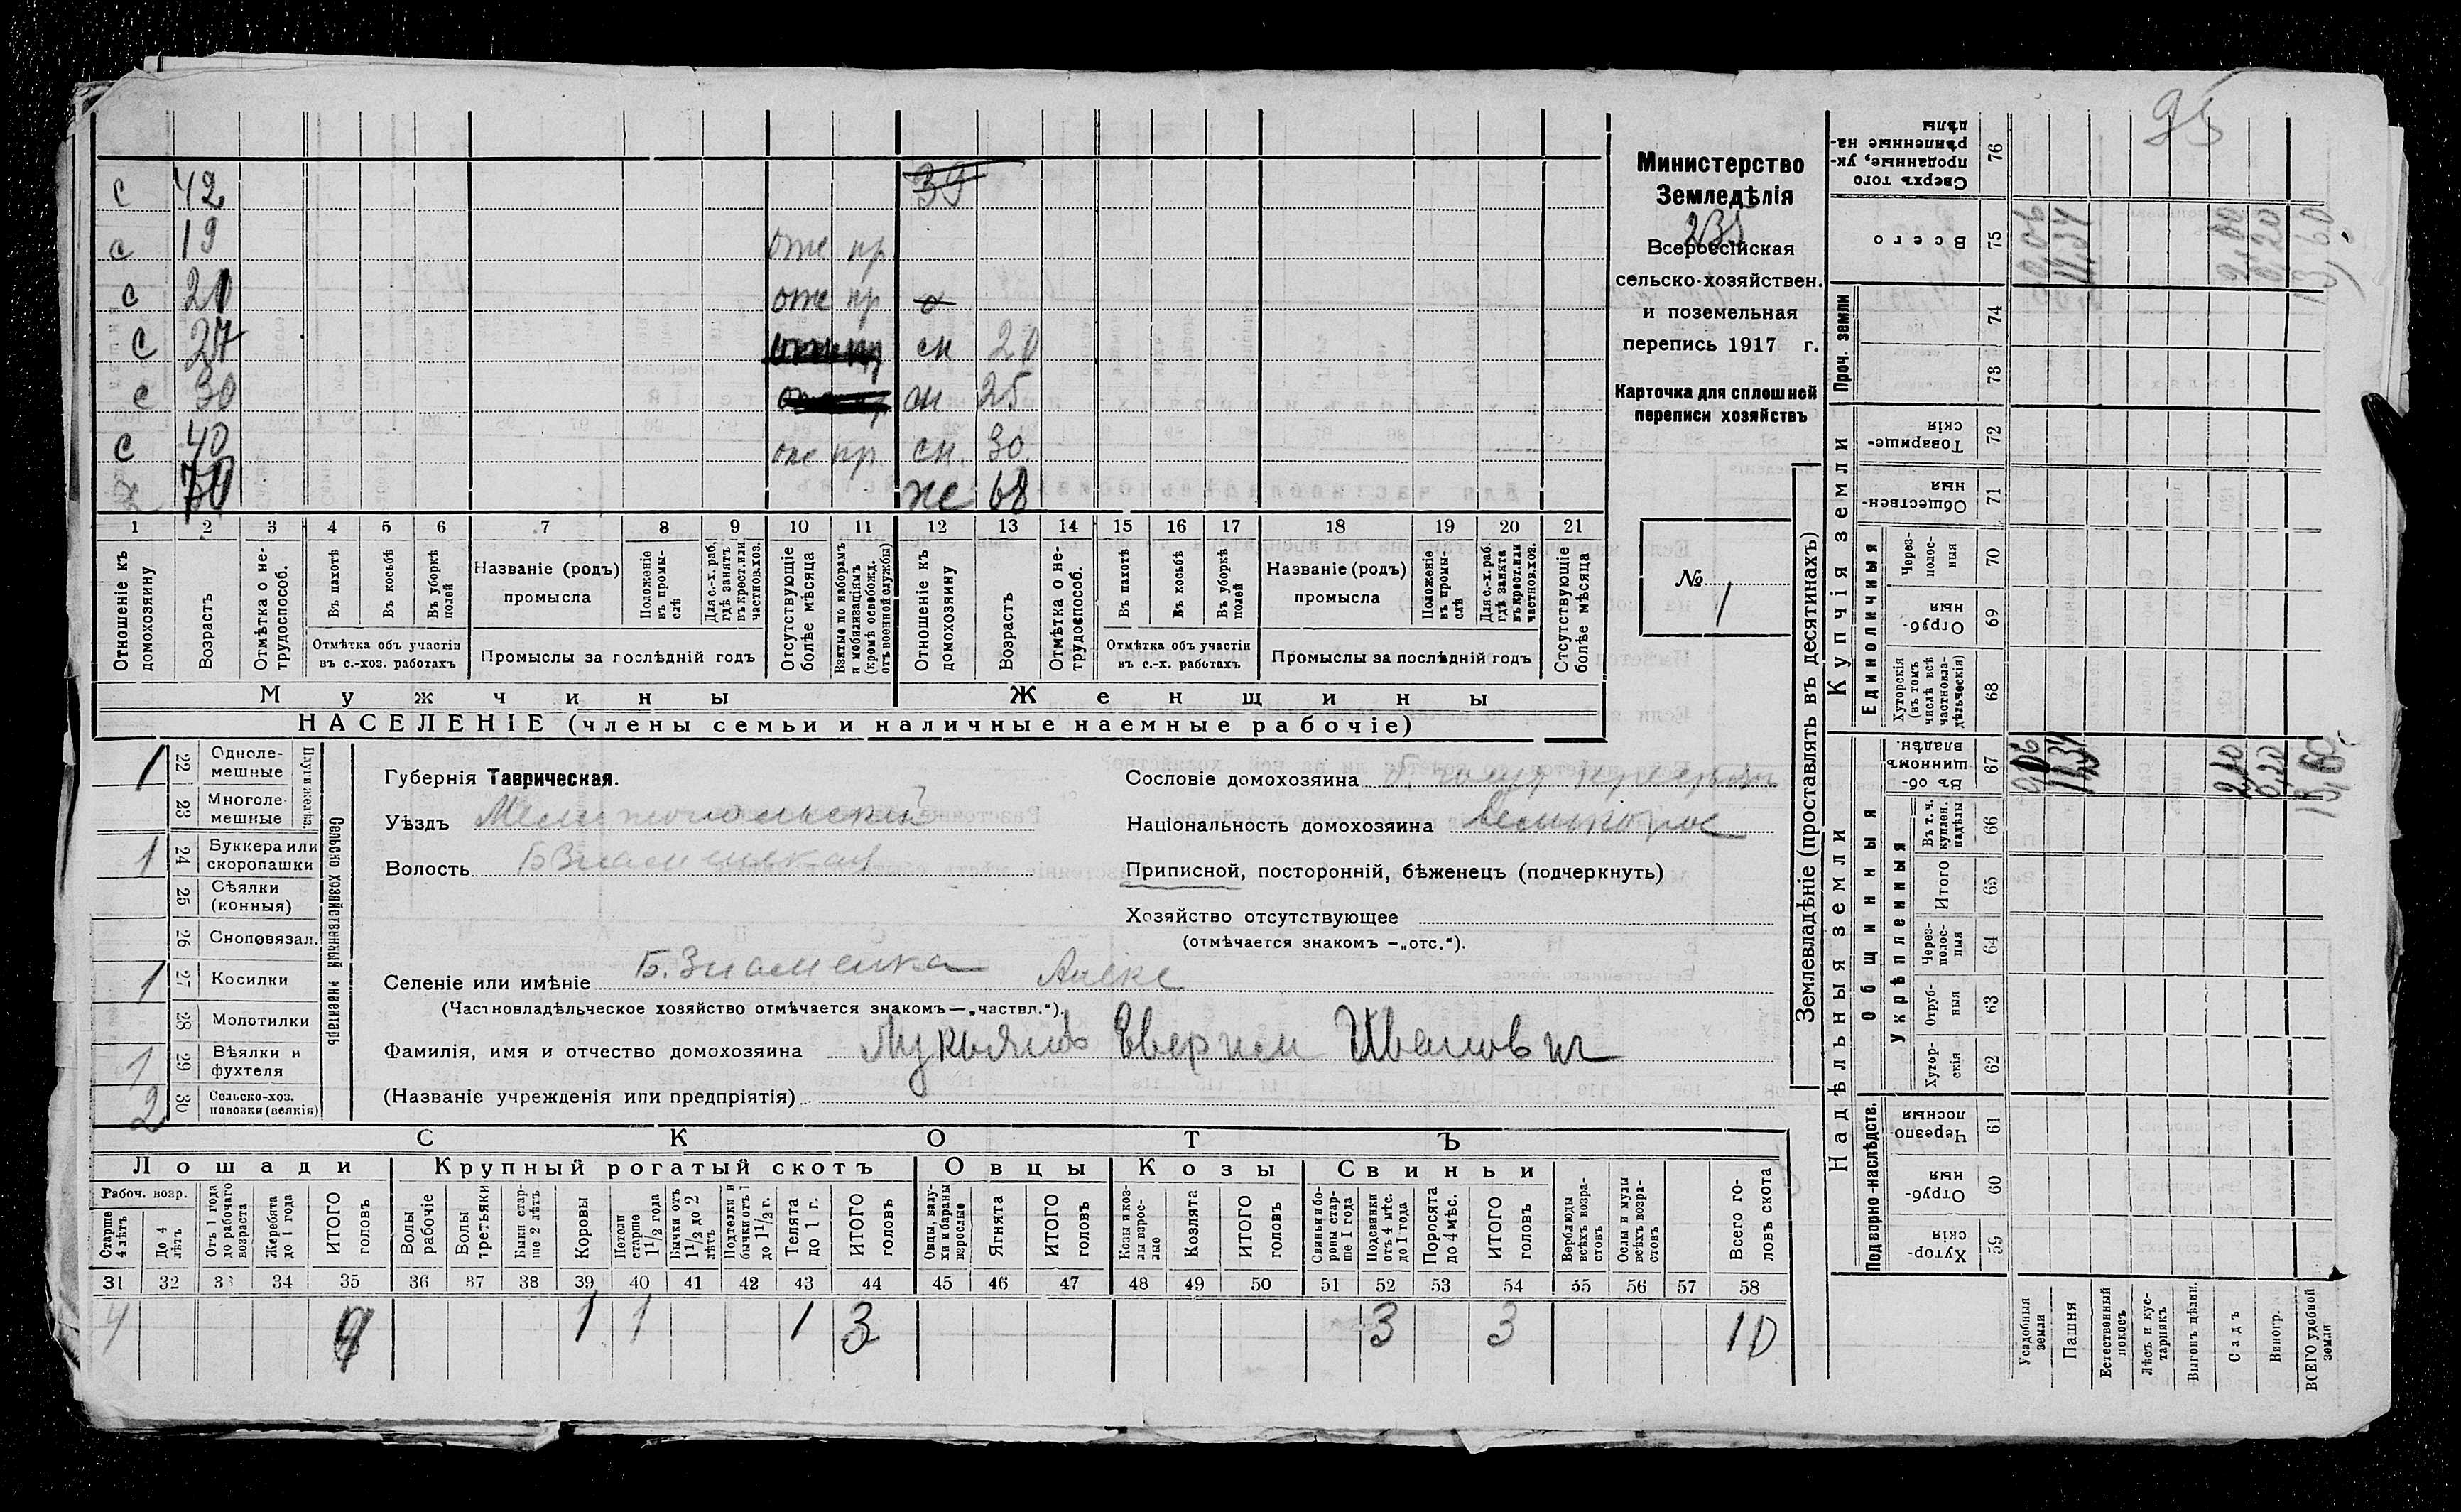 95
с 42 39
с 19 отс пр
с 21 отс пр
с 27 сн 20
с 30 сн 25
с 40 отс пр. сн. 30.
х 70 же 68
1 2 3 4 5 6 7 8 9 10 11 12 13 14 15 16 17 18 19 20 21
Отношеніе къ домохозяину
Возрастъ
Отмѣтка о нетрудоспособ.
Въ пахотѣ
Въ косьбѣ
Въ уборкѣ полей
Отмѣтка объ участіи въ с.-хоз. работахъ
Названіе (родъ) промысла
Положеніе въ промыслѣ
Для с.-х. раб. гдѣ занятъ въ крест. или частнов. хоз.
Промыслы за послѣдній годъ
Отсутствующіе болѣе мѣсяца
Взятые по наборамъ и мобилизаціямъ (кромѣ освобожд. отъ военной службы)
Отношеніе къ домохозяину
Возрастъ
Отмѣтка о нетрудоспособ.
Въ пахотѣ
Въ косьбѣ
Въ уборкѣ полей
Отмѣтка объ участіи въ с.-х. работахъ
Названіе (родъ) промысла
Положеніе въ промыслѣ
Для с.-х. раб. гдѣ занята въ крест. или частнов. хоз.
Промыслы за послѣдній годъ
Отсутствующіе болѣе мѣсяца
Мужчины
Женщины
НАСЕЛЕНІЕ (члены семьи и наличные наемные рабочіе)
Министерство
Земледѣлія
235
Всероссійская
сельско-хозяйствен.
и поземельная
перепись 1917 г.
Карточка для сплошной
переписи хозяйствъ
№ 1
Сельско хозяйственный инвентарь
Плуги желѣз.
1 22 Одноле-
мешные
23 Многоле-
мешные
1 24 Буккера или
скоропашки
25 Сѣялки
(конныя)
26 Сноповязал.
1 27 Косилки
28 Молотилки
1 29 Вѣялки и
фухтеля
2 30 Сельско-хоз.
повозки (всякія)
Губернія Таврическая.
Уѣздъ Мелитопольский
Волость Б Знаменская
Сословіе домохозяина
Національность домохозяина великорос
Приписной, посторонній, бѣженецъ (подчеркнуть)
Хозяйство отсутствующее
(отмѣчается знакомъ —„отс.“).
Селеніе или имѣніе Б. Знаменка Алекс
(Частновладѣльческое хозяйство отмѣчается знакомъ—„частвл.“).
Фамилія, имя и отчество домохозяина Лукьянов Иванович
(Названіе учрежденія или предпріятія)
СКОТЪ
Лошади Крупный рогатый скотъ Овцы Козы Свиньи
Рабоч. возр.
Старше 4 лѣтъ
До 4 лѣтъ
Отъ 1 года до рабочаго возраста
Жеребята до 1 года
ИТОГО головъ
Волы рабочіе
Волы третьяки
Быки старше 2 лѣтъ
Коровы
Нетели старше 1 1/2 года
Бычки отъ 1 1/2 до 2 лѣтъ
Подтелки и бычки отъ 1 до 1 1/2 г.
Телята до 1 г.
ИТОГО головъ
Овцы, валухи и бараны взрослые
Ягнята
ИТОГО головъ
Козы и козлы взрослые
Козлята
ИТОГО головъ
Свиньи и боровы старше 1 года
Подсвинки отъ 4 мѣс. до 1 года
Поросята до 4 мѣс.
ИТОГО головъ
Верблюды всѣхъ возрастовъ
Ослы и мулы всѣхъ возрастовъ
Всего головъ скота
31 32 33 34 35 36 37 38 39 40 41 42 43 44 45 46 47 48 49 50 51 52 53 54 55 56 57 58
4 4 1 1 1 3 3 3 10
Землевладѣніе (проставлять въ десятинахъ)
Купчія земли
Надѣльныя земли
Проч. земли
Единоличныя
Общинныя
Укрѣпленныя
Подворно-наслѣдств.
Сверхъ того проданные, укрѣпленные надѣлы 76
Всего 75
74
73
Товарищескія 72
Общественныя 71
Черезполосныя 70
Отрубныя 69
Хуторскія (въ томъ числѣ всѣ частновладѣльческія) 68
Въ общинномъ владѣн. 67
Въ т. ч. куплен. надѣлы 66
Итого 65
Черезполосныя 64
Отрубныя 63
Хуторскія 62
Черезполосныя 61
Отрубныя 60
Хуторскія 59
Усадебная земля
Пашня
Естественный покосъ
Лѣсъ и кустарникъ
Выгонъ цѣлин.
Садъ
Виногр.
ВСЕГО удобной земли